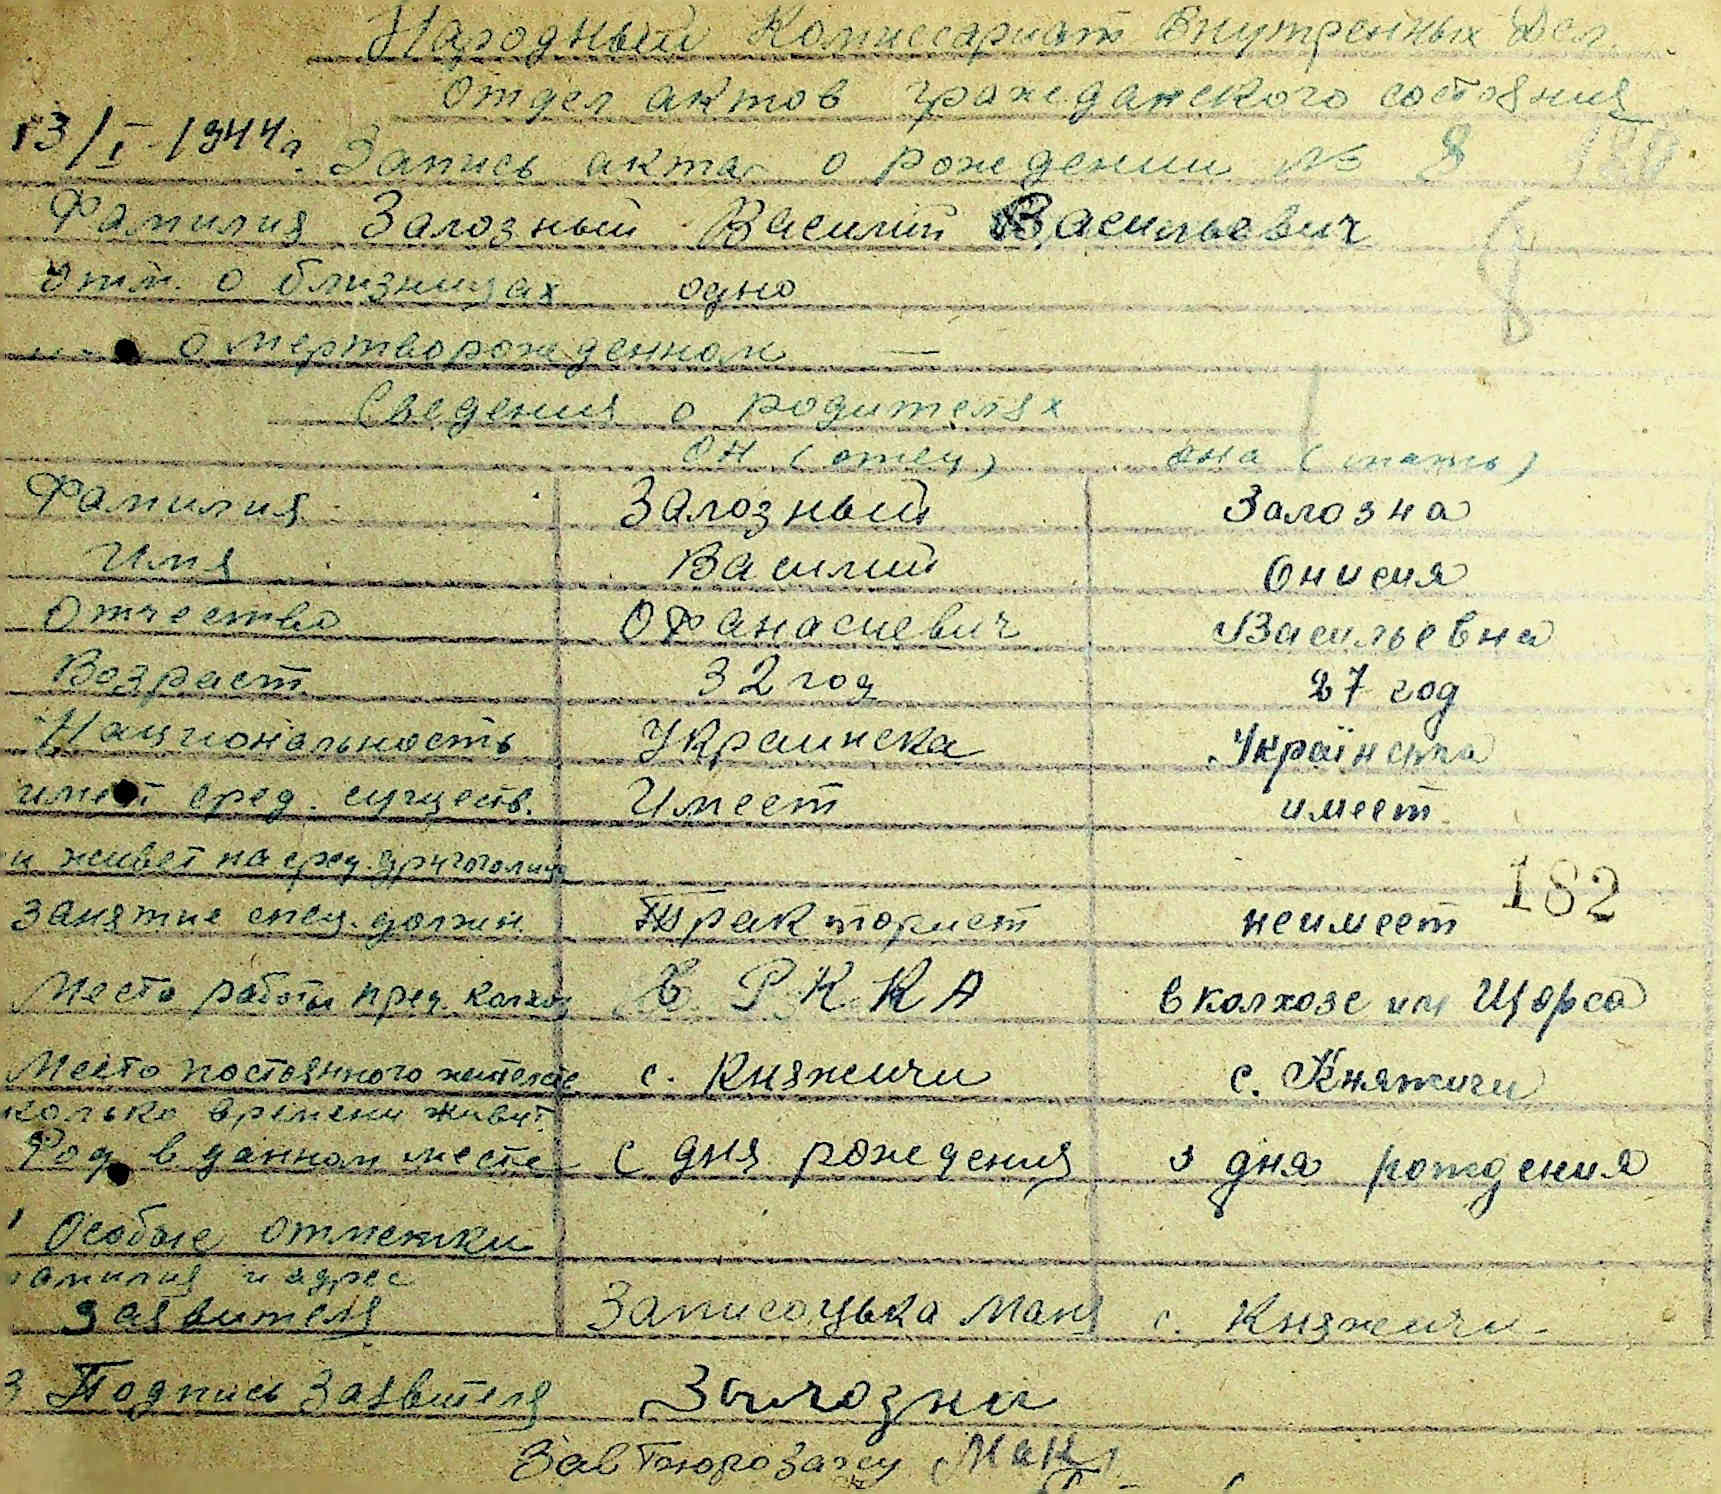 Народный Комиссариат Внутренных Дел
Отдел актов гражеданского состояния
13/I-1944г. Запись акта о рождении № 8
Фамилия Залозный Василий Васильевич
Отм. о близницах одно 8
о мертворожденном —
Сведения о родителях
он (отец) она (мать)
Фамилия Залозный Залозна
Имя Василий Онисия
Отчество Офанасиевич Васильевна
Возраст 32 год 27 год
Национальность Украинска Українська
имеет сред. существ. Имеет имеет
и живет на сред. другого лица
занятие спец. должн. Тракторист неимеет 182
Место работы пред. колхоз в РККА в колхозе им Щорса
Место постоянного жительст с. Княжичи с. Княжичи
колько времени живут
Род в данном месте с дня рождения з дня рождения
Особые отметки
амилия и адрес
заявителя с. Княжичи
3 Подпись Заявителя